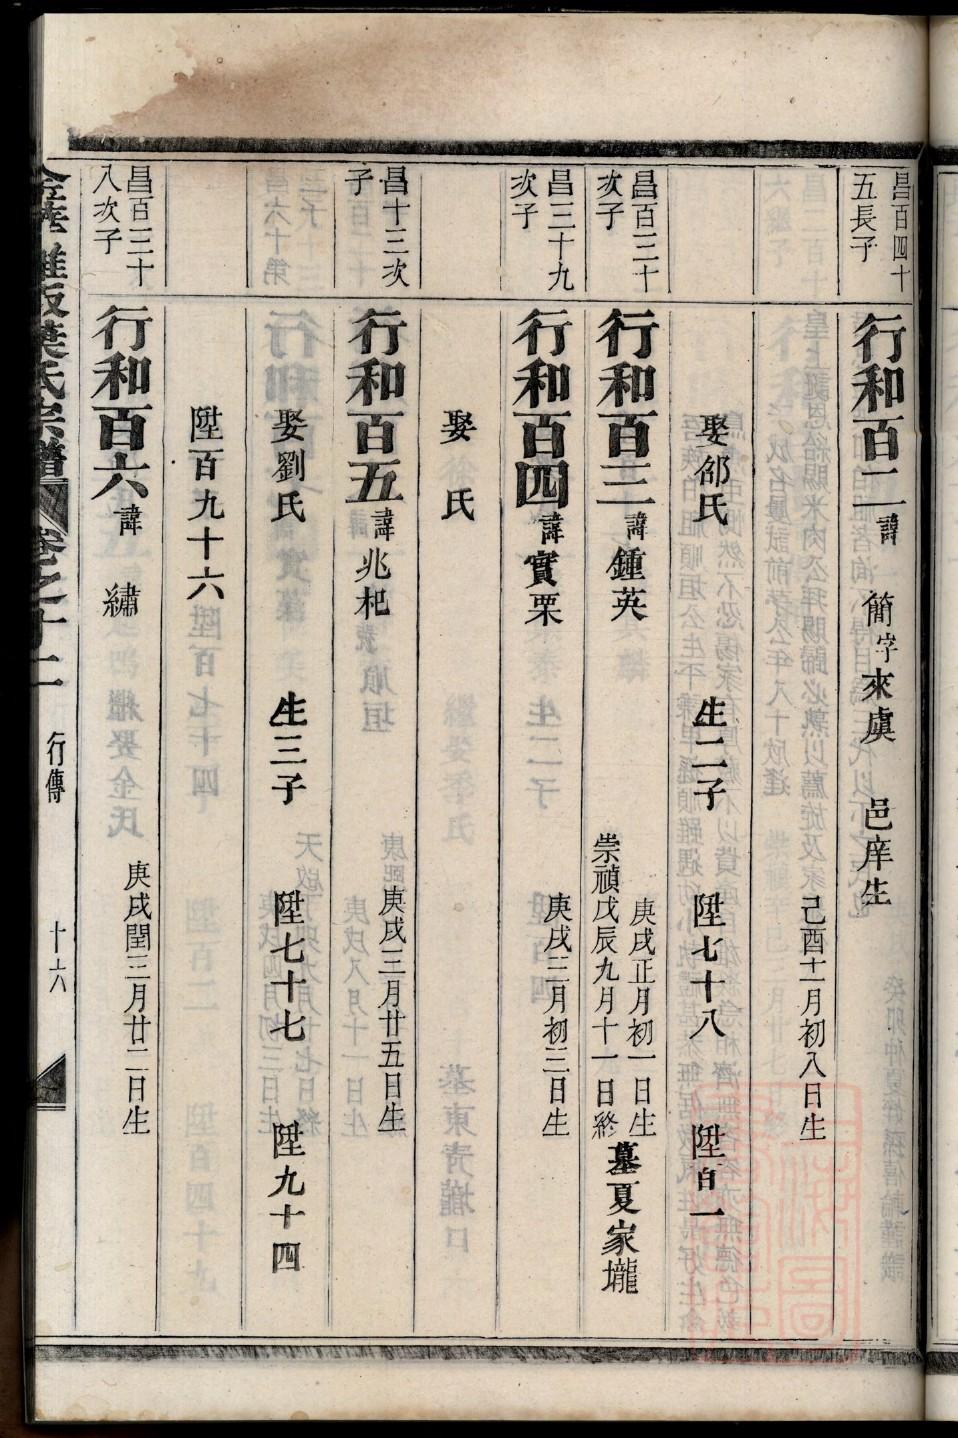 昌百四十
五長子
行和百二 諱 簡 字 來虞 邑庠生
己酉十一月初八日生
娶邵氏 生二子 陞七十八 陞百一
昌百三十
次子
行和百三 諱 鍾英
庚戌正月初一日生
崇禎戊辰九月十一日終
墓夏家壠
昌三十九
次子
行和百四 諱 實栗
庚戌三月初三日生
娶 氏
昌十三次
子
行和百五 諱 兆杞
庚戌三月廿五日生
娶劉氏 生三子 陞七十七 陞九十四
陞百九十六
昌百三十
八次子
行和百六 諱 繡
庚戌閏三月廿二日生
雅畈葉氏宗譜 卷之十二 行傳 十六